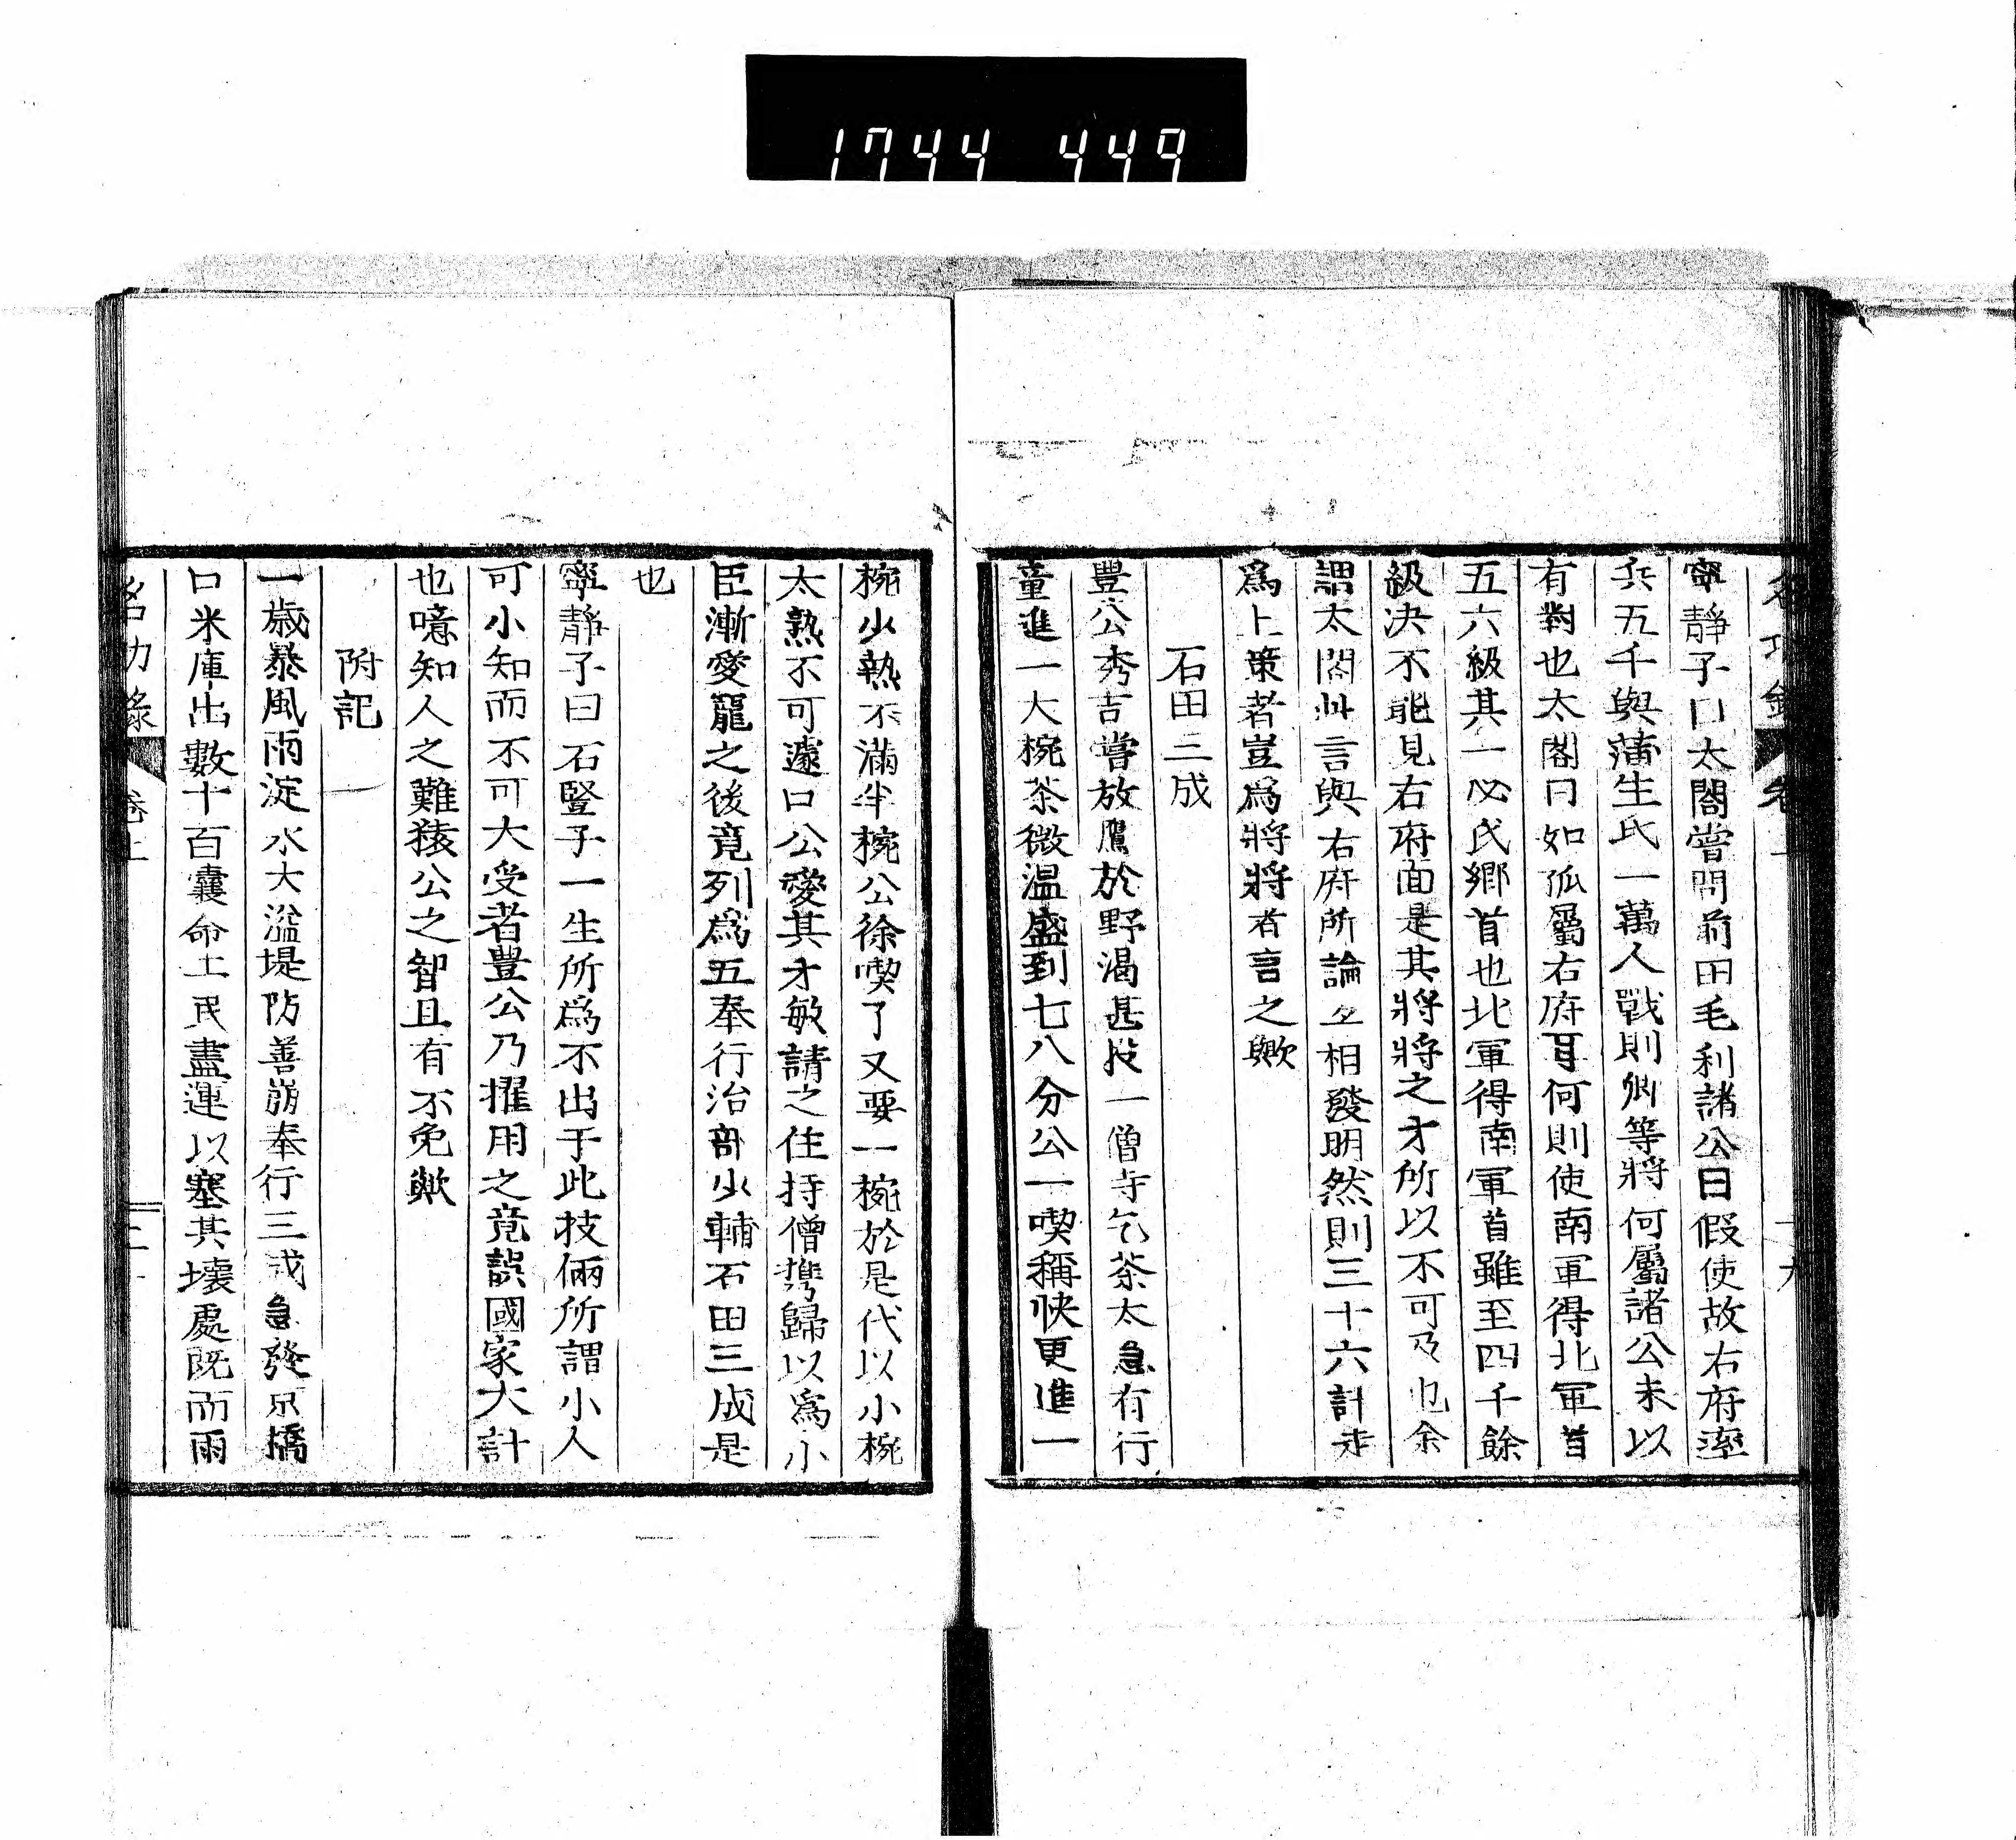 1744 449
寧靜子曰太閤嘗問前田毛利諸公曰假使故右府率
兵五千與蒲生氏一萬人戰則卿等將何屬諸公未以
有對也太閤曰如孤屬右府耳何則使南軍得北軍首
五六級其一必氏鄉首也北軍得南軍首雖至四千餘
級決不能見右府面是其將將之才所以不可及也余
謂太閤此言與右府所論互相發明然則三十六計走
爲上策者豈爲將將者言之歟
石田三成
豐公秀吉嘗放鷹於野渴甚投一僧寺乞茶太急有行
童進一大椀茶微溫盛到七八分公一喫稱快更進一
椀少熱不滿半椀公徐喫了又要一椀於是代以小椀
太熱不可遽口公愛其才敏請之住持僧攜歸以爲小
臣漸愛寵之後竟列爲五奉行治部少輔石田三成是
也
寧靜子曰石豎子一生所爲不出于此技倆所謂小人
可小知而不可大受者豐公乃擢用之竟誤國家大計
也噫知人之難猿公之智且有不免歟
附記
一歲暴風雨淀水大溢堤防善崩奉行三成急發京橋
口米庫出數十百囊命土民盡運以塞其壞處既而雨
名功錄 卷上